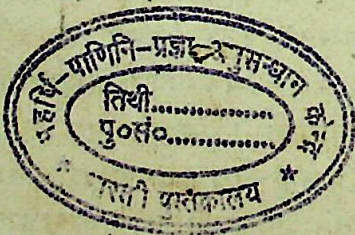 महर्षि-पाणिनि-प्रज्ञा-अनुसन्धान
तिथी..............
पु०सं०..............
* पुस्तकालय *